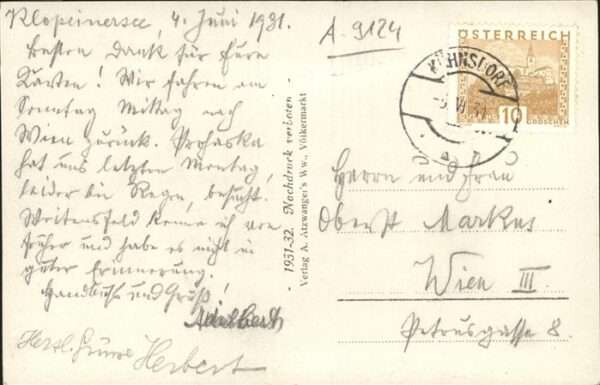 Klopeinersee, 4. Juni 1931.
Besten Dank für Eure
Karten! Wir fahren am
Sonntag Mittag nach
Wien zurück. Prohaska
hat uns letzten Montag,
leider bei Regen, besucht.
Weitensfeld kenne ich von
früher und habe es nicht in
guter Erinnerung.
Handkuss und Gruß!
Adalbert
Herzl. Grüsse
Herbert
- 1931-32. Nachdruck verboten -
Verlag A. Atzwanger's Ww., Völkermarkt
A-9124
ÖSTERREICH
10
GROSCHEN
KÜHNSDORF
Herrn und Frau
Oberst Markus
Wien III.
Petrusgasse 8.